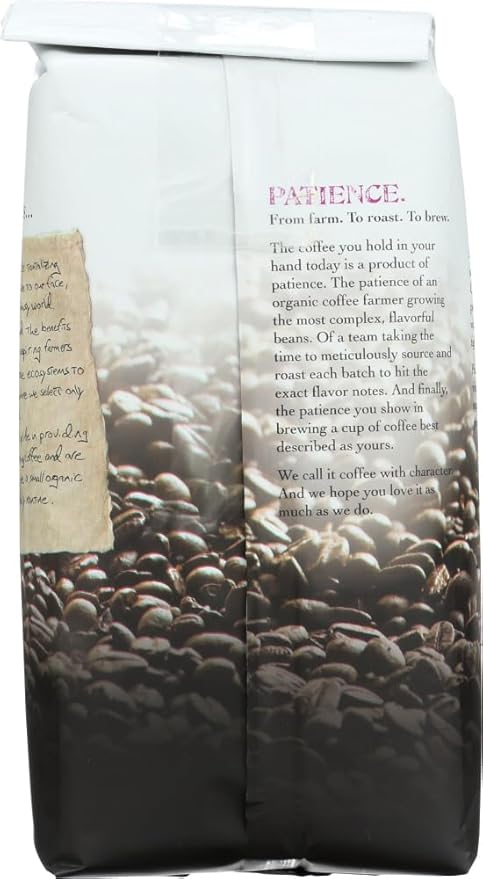 PATIENCE.
From farm. To roast. To brew.
The coffee you hold in your
hand today is a product of
patience. The patience of an
organic coffee farmer growing
the most complex, flavorful
beans. Of a team taking the
time to meticulously source and
roast each batch to hit the
exact flavor notes. And finally,
the patience you show in
brewing a cup of coffee best
described as yours.
We call it coffee with character.
And we hope you love it as
much as we do.
to our face,
world
The benefits
farmers
ecosystems to
we select only
in providing
coffee and are
a small organic